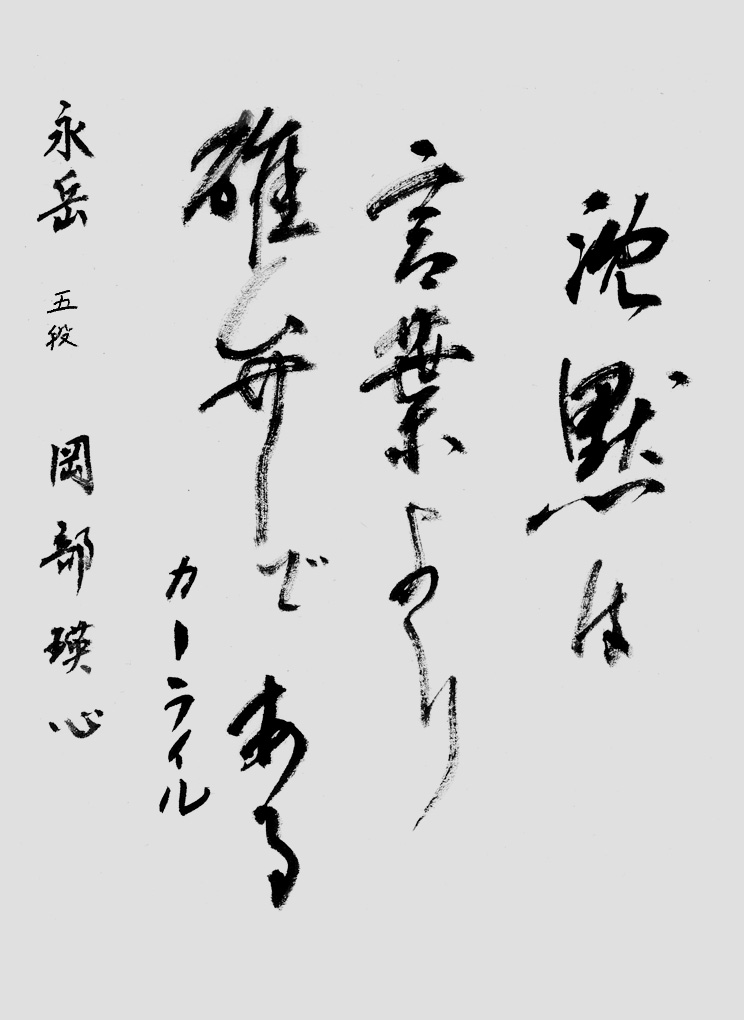 沈黙は
言葉より
雄弁である
カーライル
永岳 五段 岡部瑛心